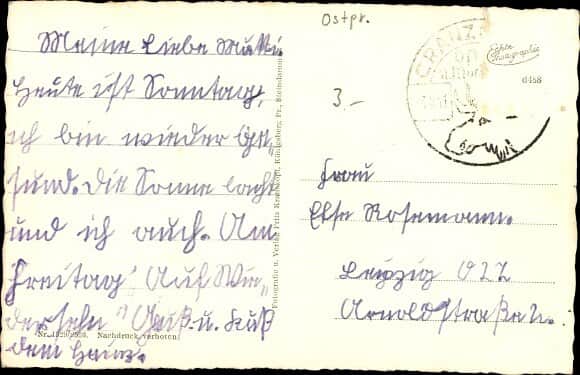 Ostpr.
3.-
CRANZ
Echte Photographie
6458
Meine Liebe Mutti
Heute ist Sonntag,
ich bin wieder ge-
sund. Die Sonne lacht
und ich auch. Am
Freitag "Auf Wie-
dersehn" Gruß u. Kuß
dein Heinz.
Fotografie u. Verlag Fritz Krauskopf, Königsberg, Pr., Steindamm
Nr. Nachdruck verboten!
Frau
Else Rosemann.
Leipzig O 22
Arnoldstraße